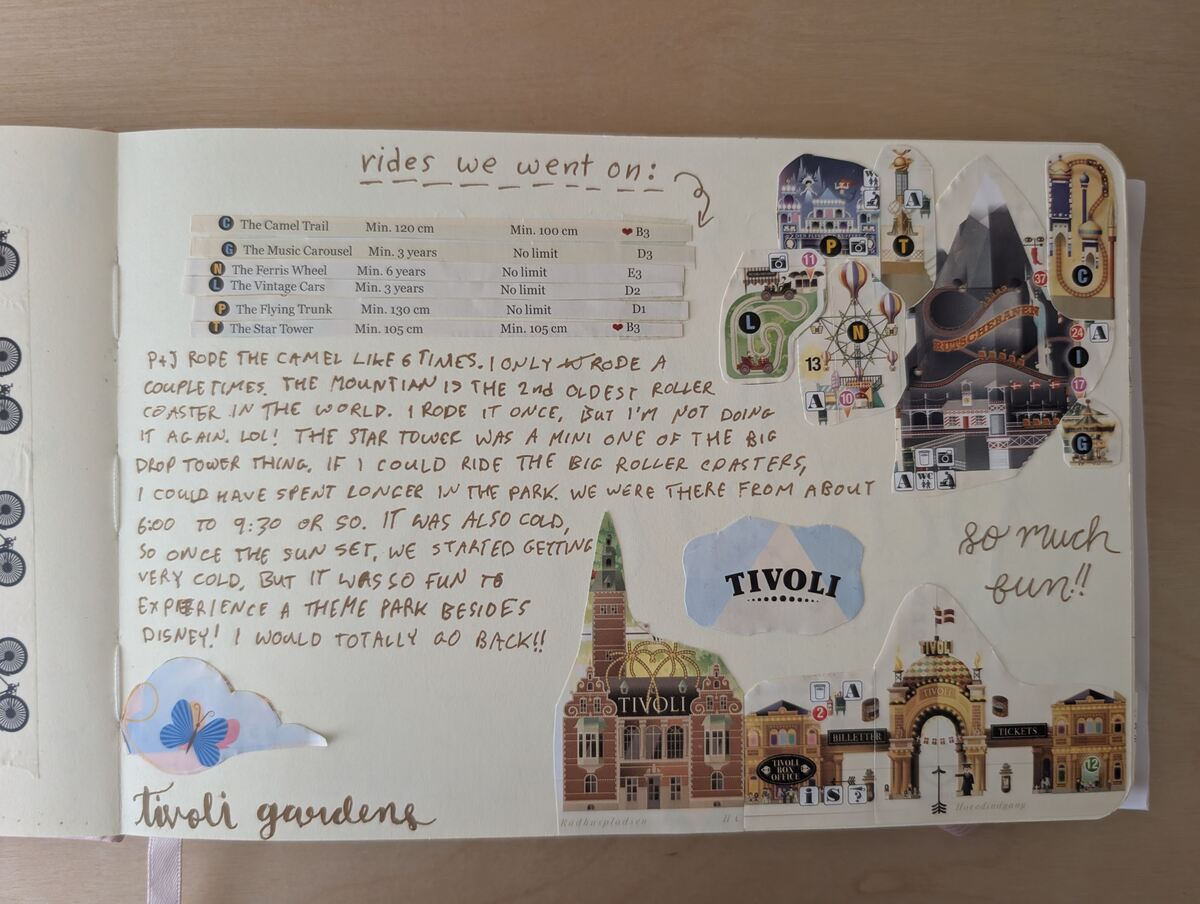 rides we went on:
C The Camel Trail Min. 120 cm Min. 100 cm ❤ B3
G The Music Carousel Min. 3 years No limit D3
N The Ferris Wheel Min. 6 years No limit E3
L The Vintage Cars Min. 3 years No limit D2
P The Flying Trunk Min. 130 cm No limit D1
T The Star Tower Min. 105 cm Min. 105 cm ❤ B3
P+J RODE THE CAMEL LIKE 6 TIMES. I ONLY RODE A
COUPLE TIMES. THE MOUNTIAN IS THE 2nd OLDEST ROLLER
COASTER IN THE WORLD. I RODE IT ONCE, BUT I'M NOT DOING
IT AGAIN. LOL! THE STAR TOWER WAS A MINI ONE OF THE BIG
DROP TOWER THING. IF I COULD RIDE THE BIG ROLLER COASTERS,
I COULD HAVE SPENT LONGER IN THE PARK. WE WERE THERE FROM ABOUT
6:00 TO 9:30 OR SO. IT WAS ALSO COLD,
SO ONCE THE SUN SET, WE STARTED GETTING
VERY COLD, BUT IT WAS SO FUN TO
EXPERIENCE A THEME PARK BESIDES
DISNEY! I WOULD TOTALLY GO BACK!!
tivoli gardens
P
T
A
C
L
11
N
13
A
10
RUTSCHEBANEN
37
24
A
I
17
G
A WC
so much
fun!!
TIVOLI
TIVOLI
Rådhuspladsen
2
A
BILLETTER
TIVOLI
BOX
OFFICE
i S ?
TIVOLI
TIVOLI
TICKETS
12
Hovedindgang